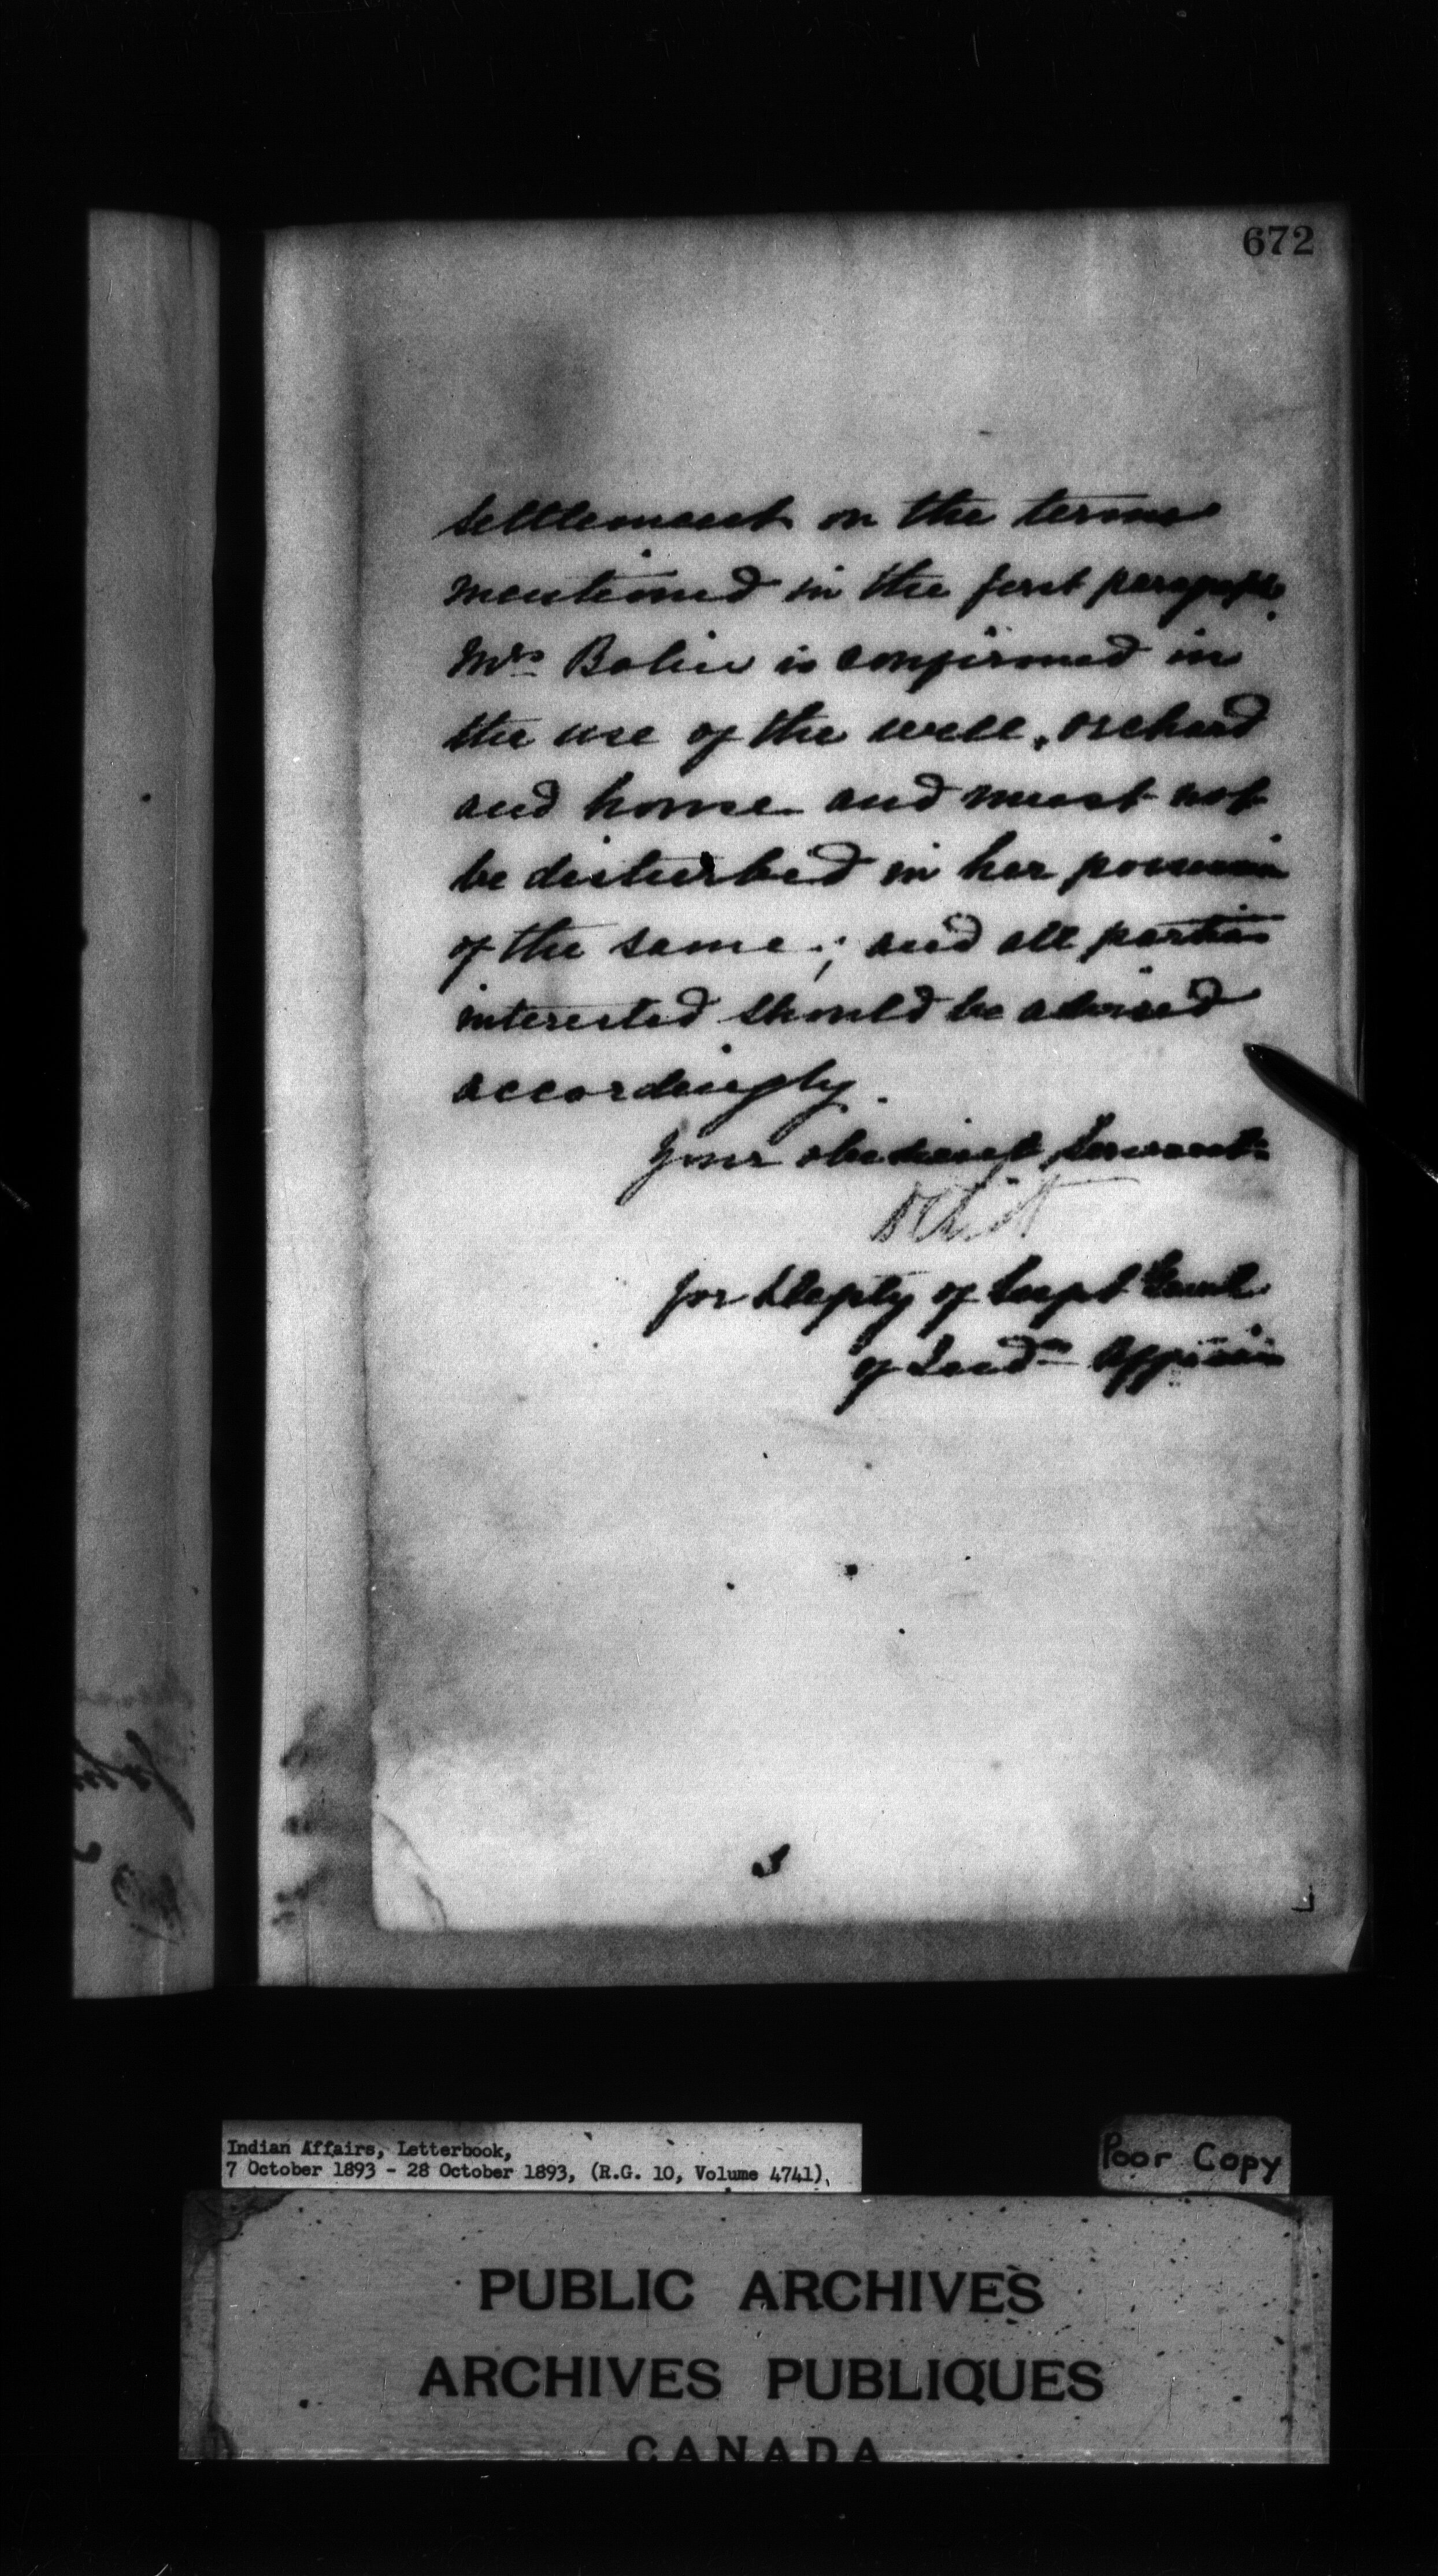 672
settlement on the terms
mentioned in the first paragraph.
Mrs is confirmed in
the use of the well, orchard
and house and must not
be disturbed in her possession
of the same; and all parties
interested should be advised
accordingly.
Your obedient Servant
for Depty of Supt Genl
of Indn Affairs
Indian Affairs, Letterbook,
7 October 1893 - 28 October 1893, (R.G. 10, Volume 4741).
Poor Copy
PUBLIC ARCHIVES
ARCHIVES PUBLIQUES
CANADA